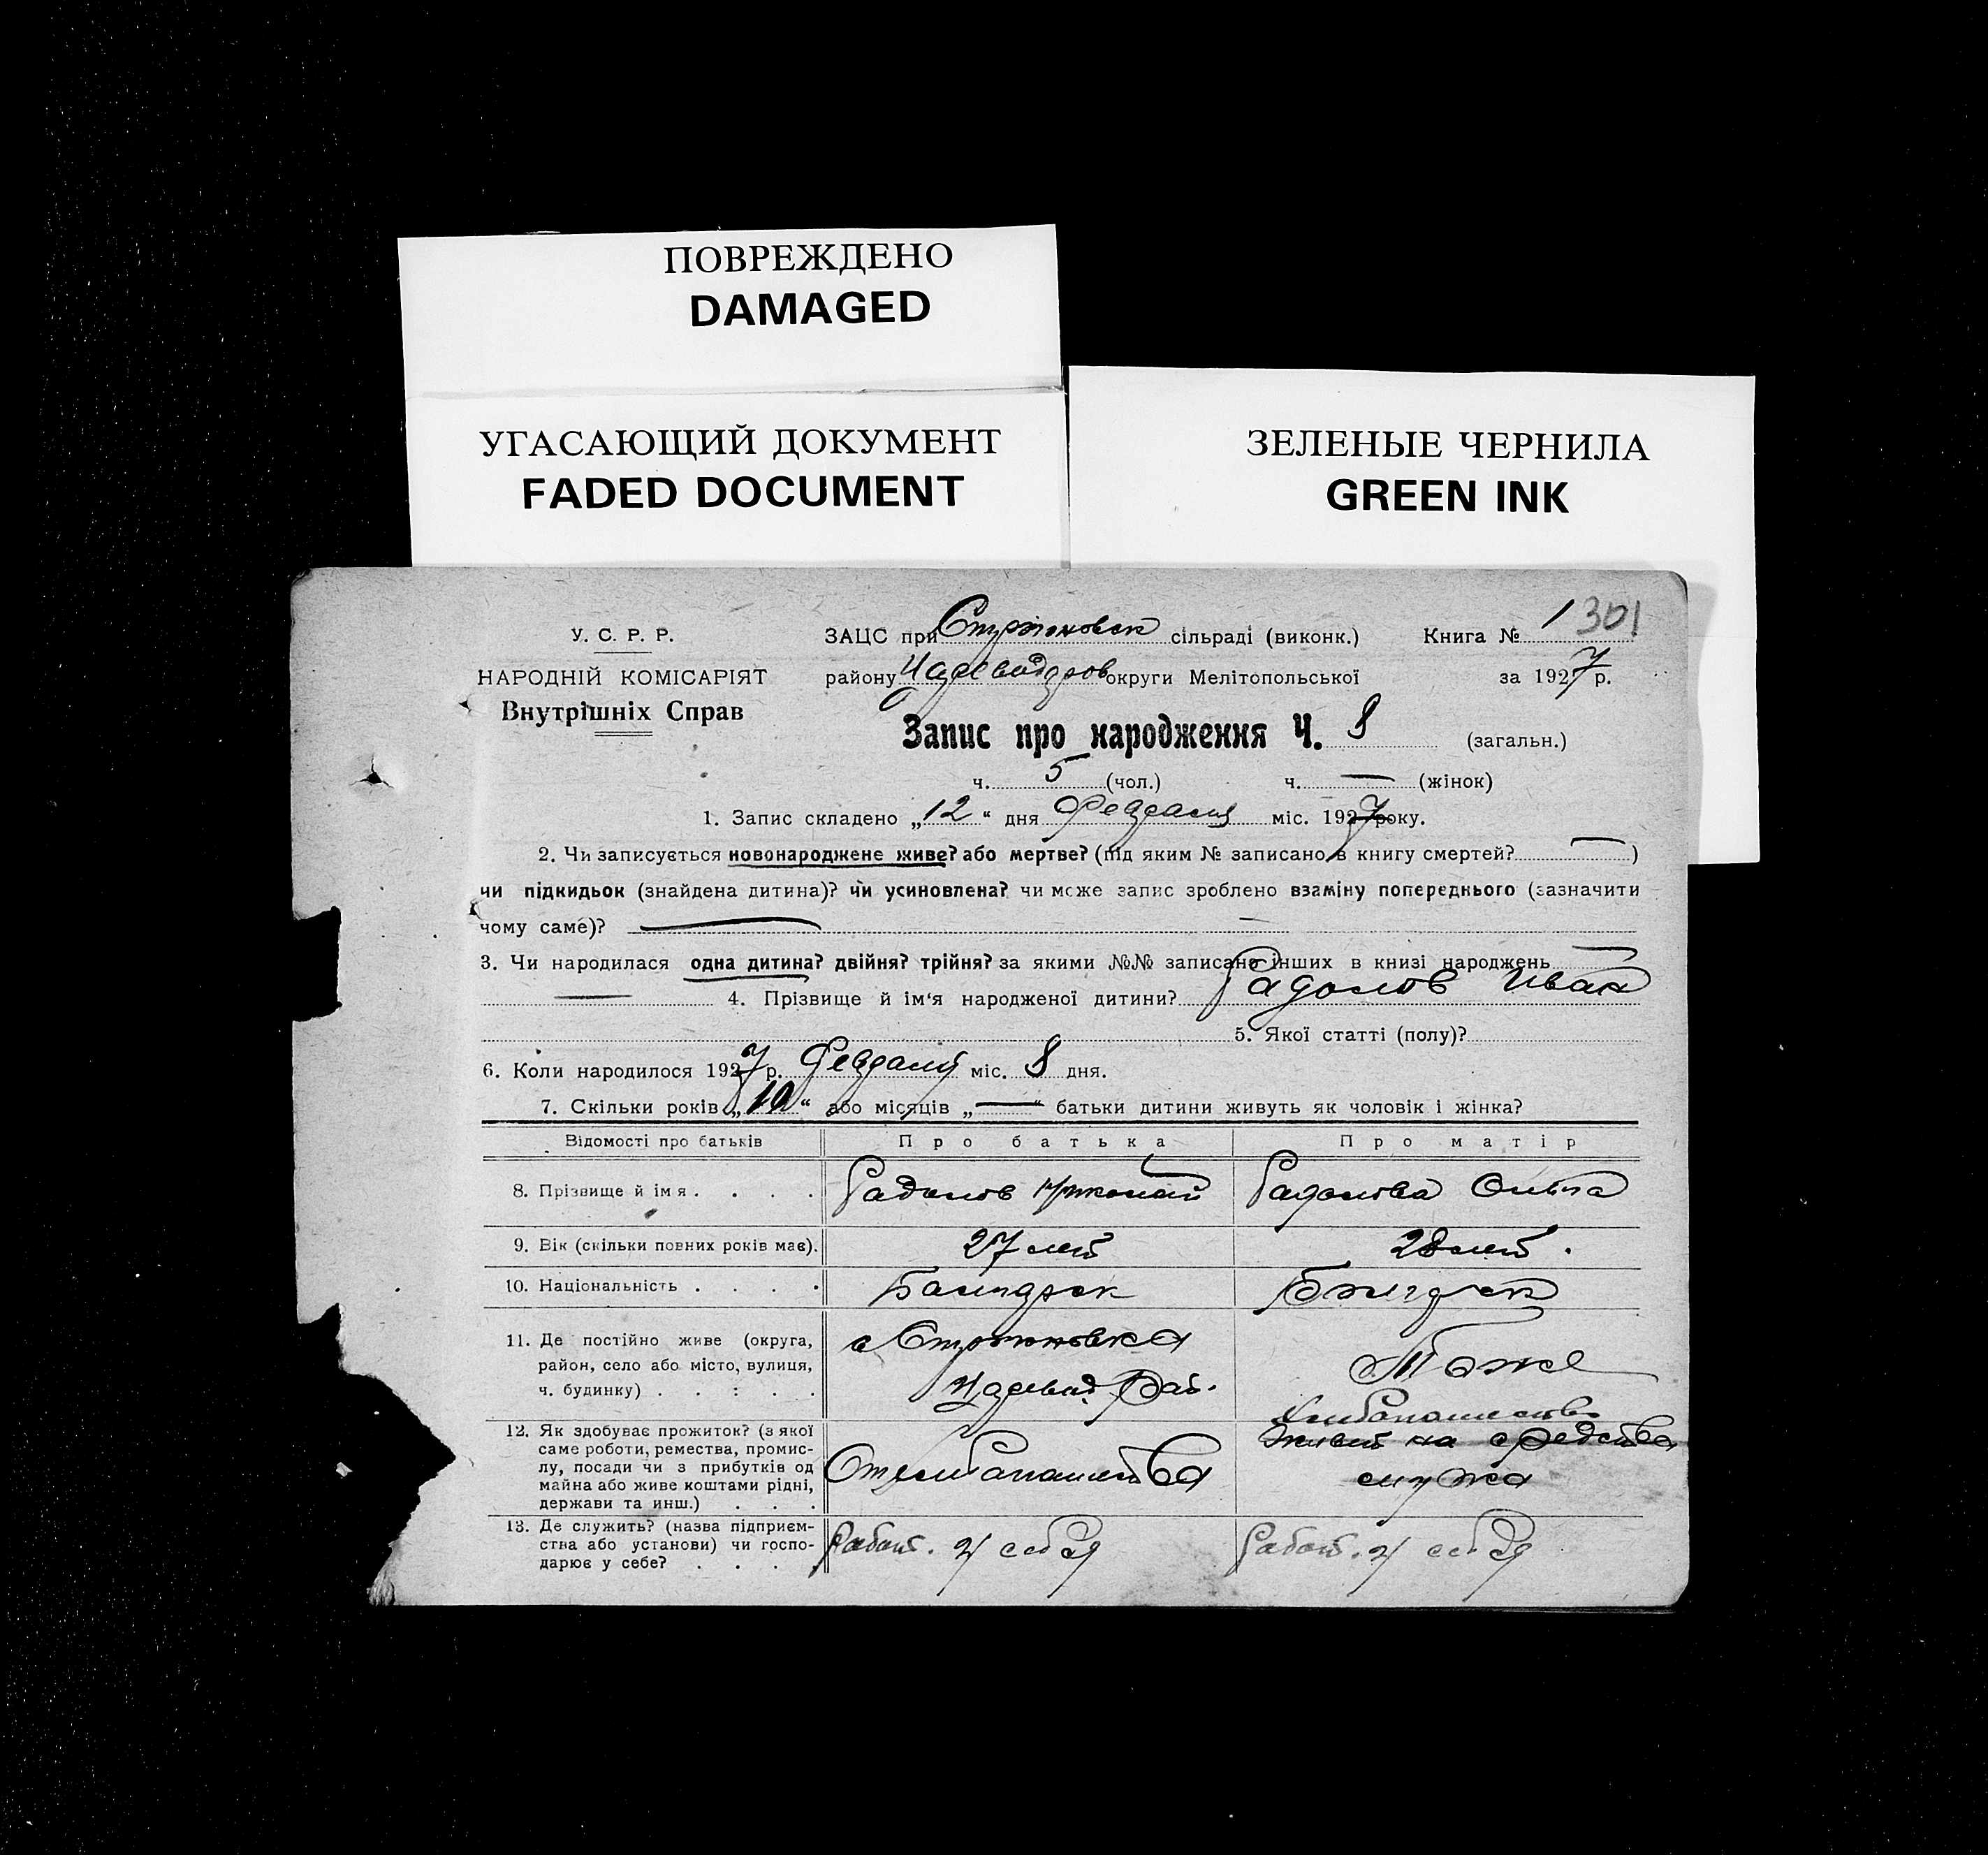 ПОВРЕЖДЕНО
DAMAGED
УГАСАЮЩИЙ ДОКУМЕНТ
FADED DOCUMENT
ЗЕЛЕНЫЕ ЧЕРНИЛА
GREEN INK
У. С. Р. Р.
НАРОДНІЙ КОМІСАРІЯТ
Внутрішніх Справ
ЗАЦС при сільраді (виконк.) Книга № 1 301
району округи Мелітопольської за 1927 р.
Запис про народження Ч. 8 (загальн.)
ч. 5 (чол.) ч. — (жінок)
1. Запис складено „12“ дня Февраля міс. 1927 року.
2. Чи записується новонароджене живе? або мертве? (під яким № записано в книгу смертей? — )
чи підкидьок (знайдена дитина)? чи усиновлена? чи може запис зроблено взаміну попереднього (зазначити
чому саме)? —
3. Чи народилася одна дитина? двійня? трійня? за якими №№ записано інших в книзі народжень —
— 4. Прізвище й ім‘я народженої дитини? Радолов Иван
5. Якої статті (полу)?
6. Коли народилося 1927 р. Февраля міс. 8 дня.
7. Скільки років „10“ або місяців „—“ батьки дитини живуть як чоловік і жінка?
Відомості про батьків Про батька Про матір
8. Прізвище й імя . . . . Радолов Николай Радолова Ольга
9. Вік (скільки повних років має). 27 лет 28 лет.
10. Національність . . . .
11. Де постійно живе (округа,
район, село або місто, вулиця,
ч. будинку) . . : . . Тоже
12. Як здобуває прожиток? (з якої
саме роботи, ремества, промис-
лу, посади чи з прибутків од
майна або живе коштами рідні,
держави та инш.) . . .
Живет на средства
мужа
13. Де служить? (назва підприєм-
ства або установи) чи госпо-
дарює у себе? . . .
Работ. у себя Работ. у себя